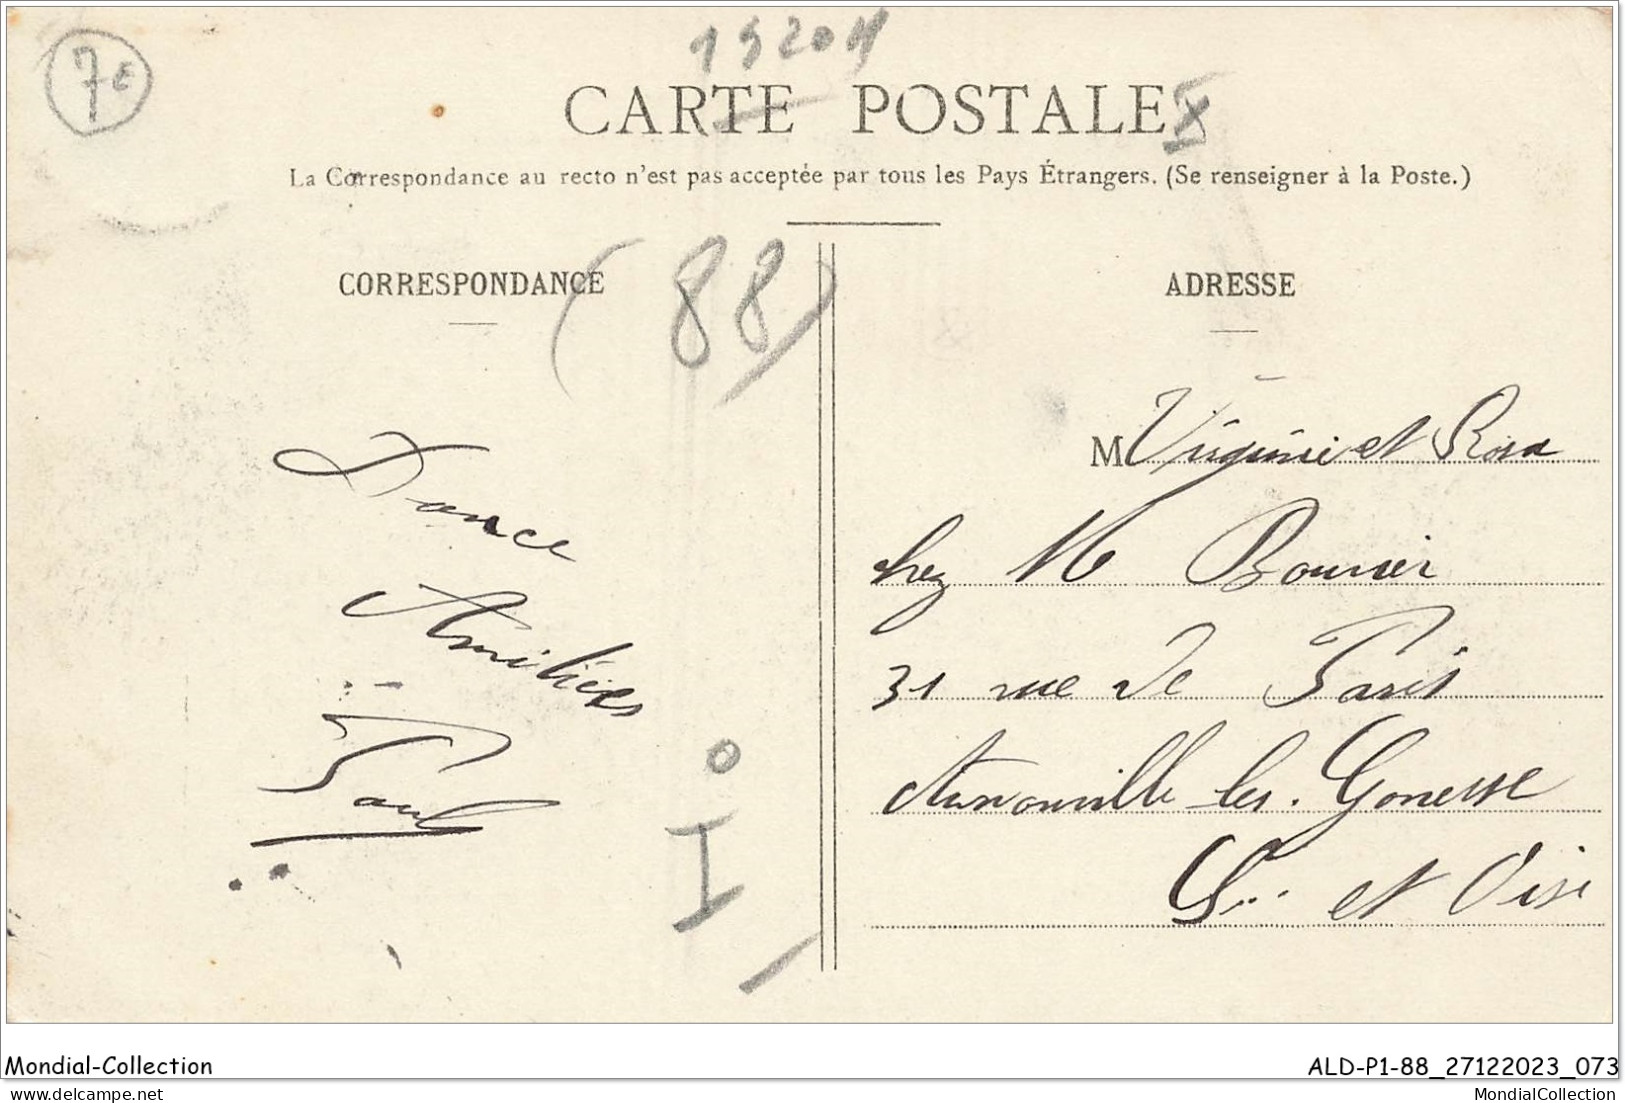 7€
15204
CARTE POSTALE
La Correspondance au recto n'est pas acceptée par tous les Pays Étrangers. (Se renseigner à la Poste.)
CORRESPONDANCE
(88)
ADRESSE
M Virginie et Rosa
chez M Bournier
31 rue de Paris
Arnouville les Gonesse
S. et Oise
Douce
Amitiés
Paul
Mondial-Collection
ALD-P1-88_27122023_073
delcampe.net
MondialCollection